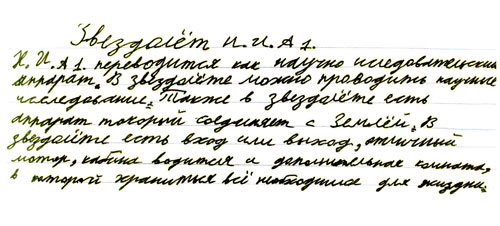 Звездолёт Н.И.А 1.
Н.И.А 1. переводится как научно иследовательский
аппарат. В звездолёте можно проводить научные
исследование. Также в звездолёте есть
аппарат токорый соединяет с Землёй. В
звездолёте есть вход или выход, отличный
мотор, кабина водителя и дополнительная комната,
в которой храниться всё необходимое для жизни.